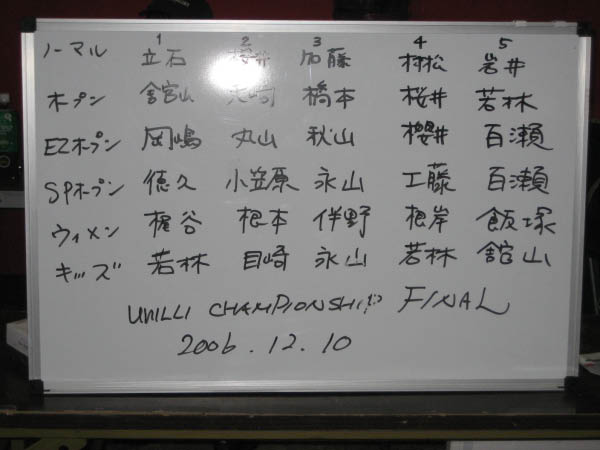 1 2 3 4 5
ノーマル 立石 櫻井 加藤 村松 岩井
オープン 舘山 橋本 桜井 若林
EZオープン 岡嶋 丸山 秋山 櫻井 百瀬
SPオープン 徳久 小笠原 永山 工藤 百瀬
ウィメン 梶谷 根本 伴野 根岸 飯塚
キッズ 若林 目崎 永山 若林 舘山
UNILLI CHAMPIONSHIP FINAL
2006.12.10